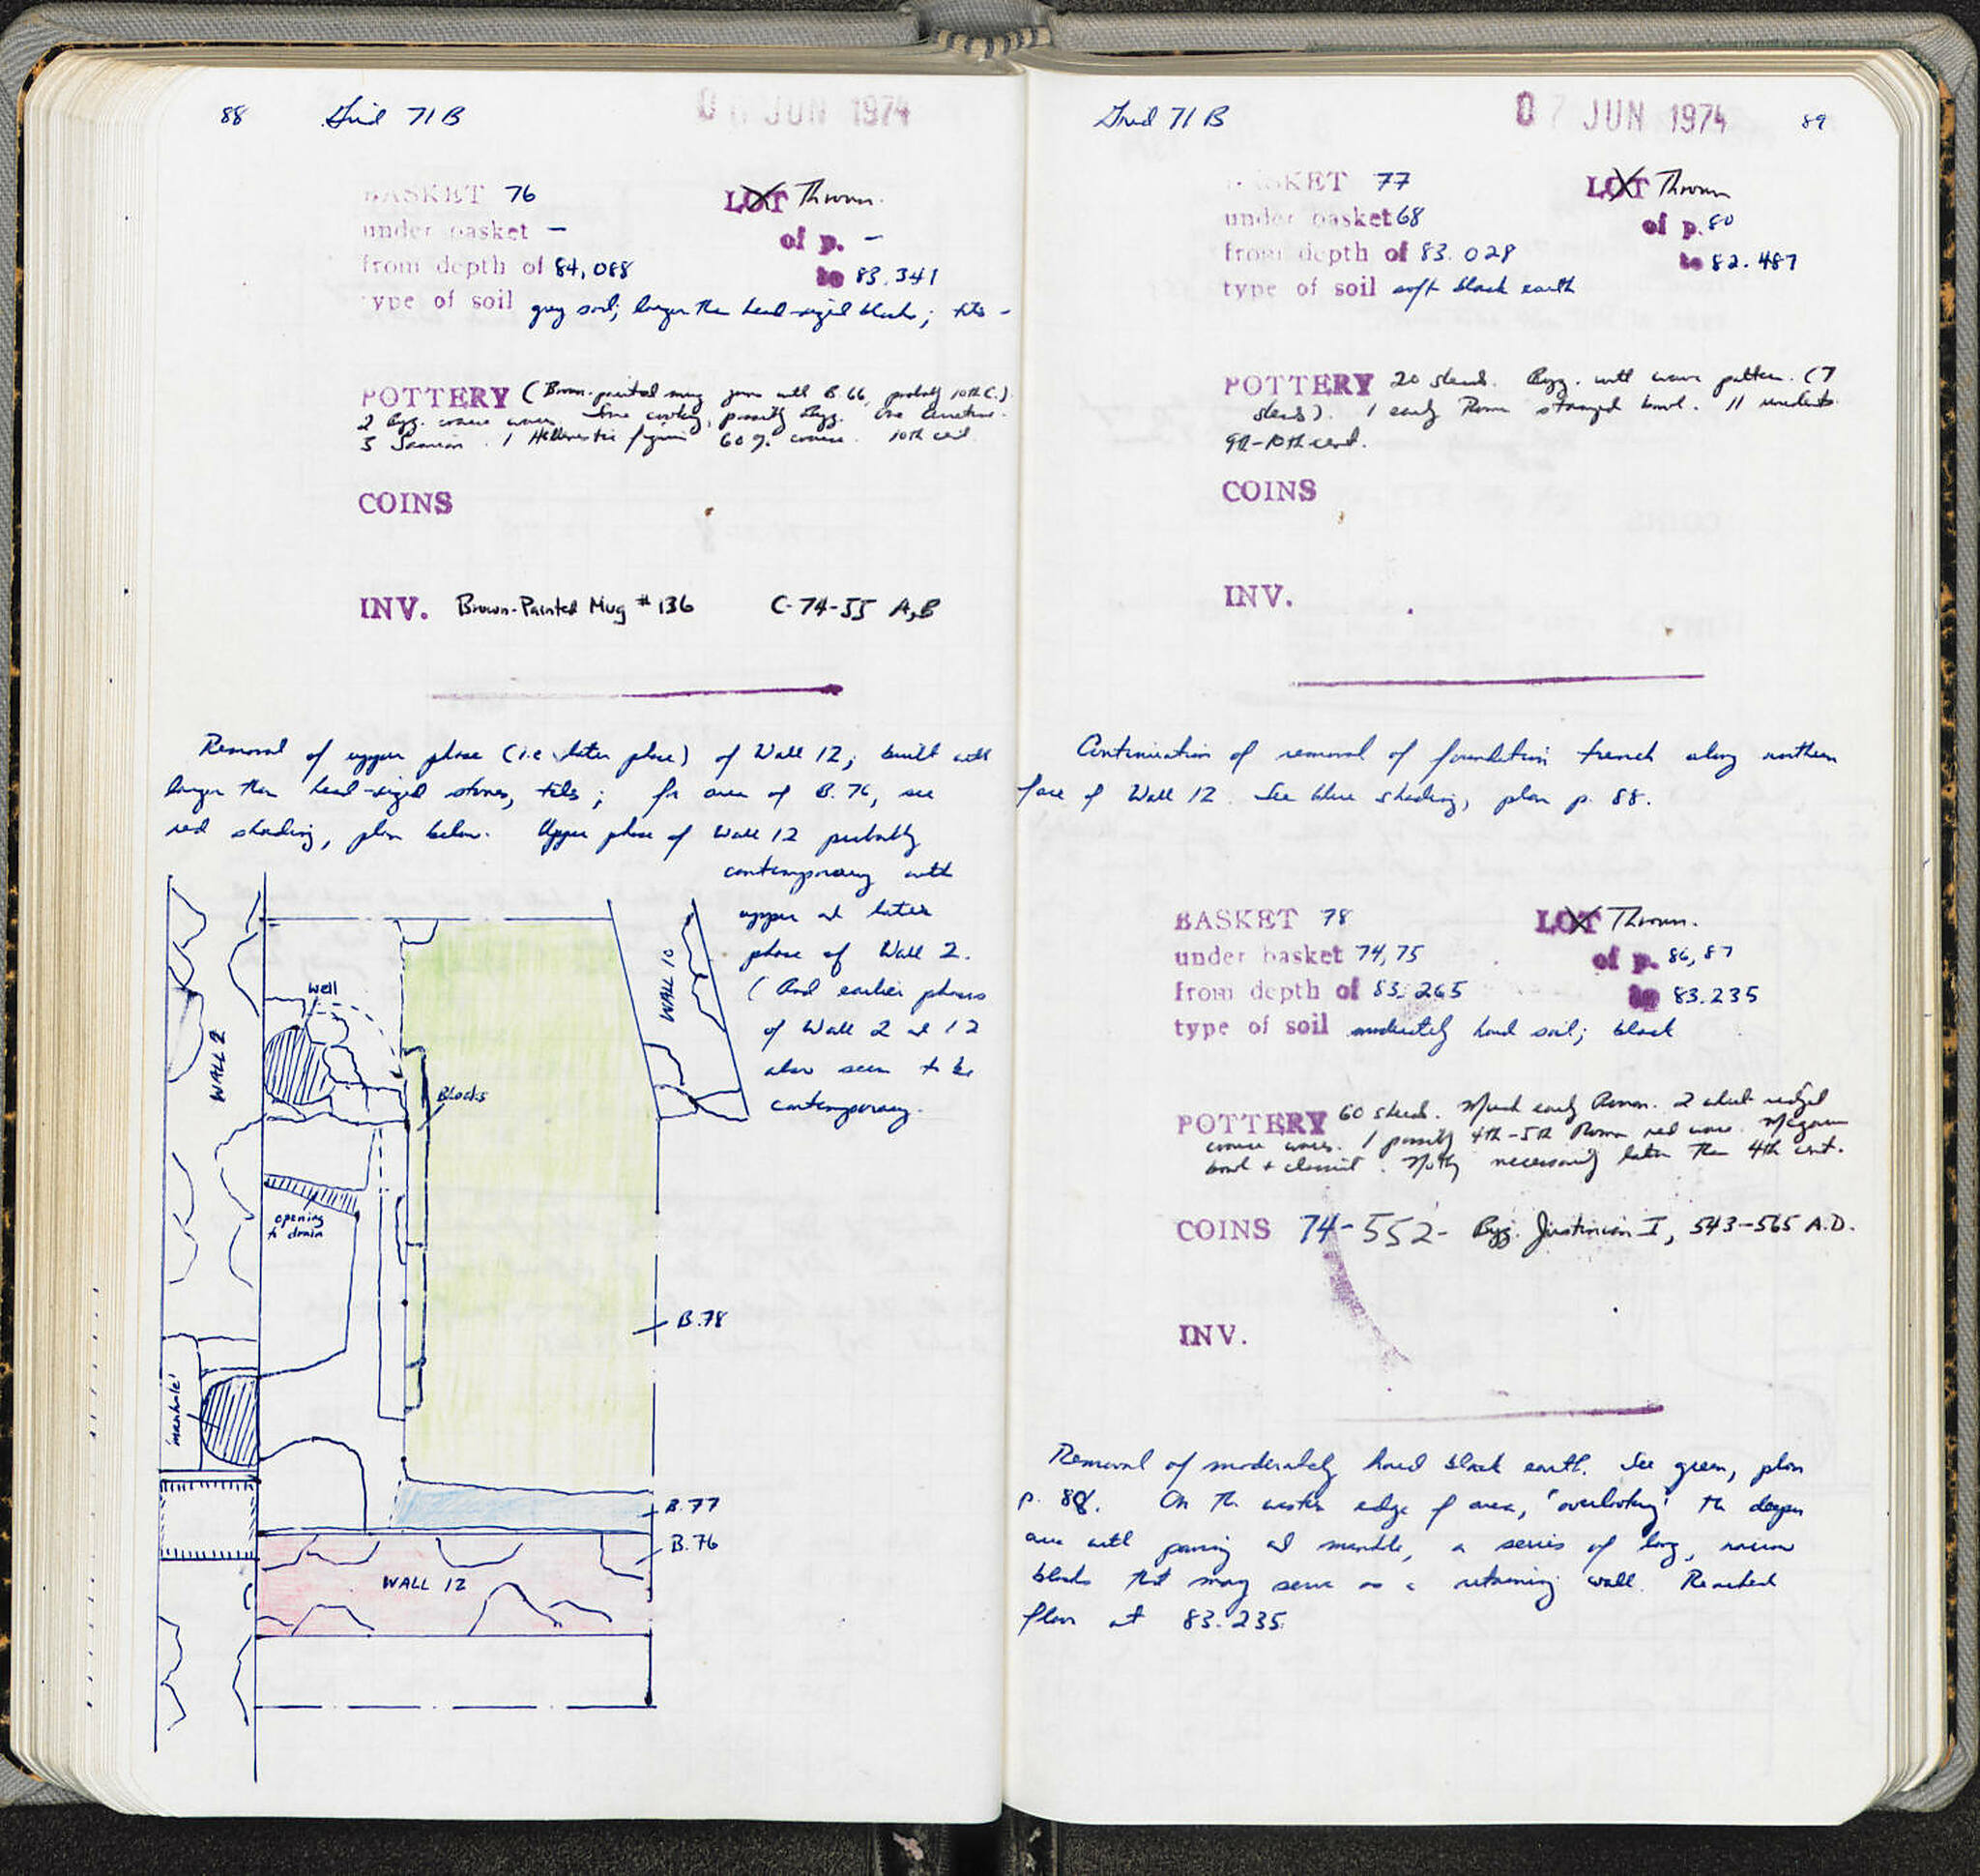 88 Grid 71 B 0 JUN 1974
BASKET 76 LOT Thrown.
under basket – of p. –
from depth of 84,088 to 83.341
type of soil grey soil; larger than head-sized blocks; tiles -
POTTERY (Brown-painted mug joins with B. 66, probably 10th C.)
2 Byz. coarse wares. Some cooking, possibly Byz. One
3 Samian. 1 Hellenistic 60% coarse. 10th cent.
COINS
INV. Brown-Painted Mug #136 C-74-55 A,B
Removal of upper phase (i.e. later phase) of Wall 12; built with
larger than head-sized stones, tiles; for area of B. 76, see
red shading, plan below. Upper phase of Wall 12 probably
contemporary with
upper and later
phase of Wall 2.
(And earlier phases
of Wall 2 and 12
also seem to be
contemporary.
WALL 2
well
WALL 10
Blocks
opening
to drain
B.78
'manhole'
B.77
B.76
WALL 12
Grid 71 B 07 JUN 1974 89
BASKET 77 LOT Thrown
under basket 68 of p. 80
from depth of 83.028 to 82.487
type of soil soft black earth
POTTERY 20 sherds. Byz. with wave pattern. (7
sherds). 1 early Roman stamped bowl. 11
9th-10th cent.
COINS
INV.
Continuation of removal of foundation trench along northern
face of Wall 12. See blue shading, plan p. 88.
BASKET 78 LOT Thrown.
under basket 74,75 of p. 86,87
from depth of 83.265 to 83.235
type of soil moderately hard soil; black
POTTERY 60 sherds. Much early Roman. 2 wheel ridged
coarse wares. 1 possibly 4th-5th Roman red ware. Megarian
bowl + classical. Nothing necessarily later than 4th cent.
COINS 74-552- Byz. Justinian I, 543-565 A.D.
INV.
Removal of moderately hard black earth. See green, plan
p. 88. On the western edge of area, 'overlooking' the deeper
area with paving and manhole, a series of long, narrow
blocks that may serve as a retaining wall. Reached
floor at 83.235